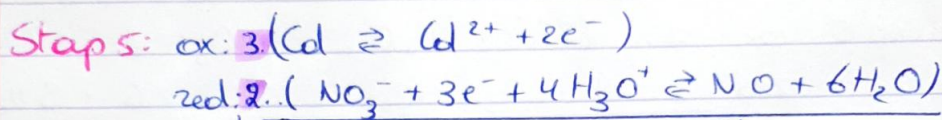 Stap 5: ox: 3.(Cd ⇄ Cd²⁺ + 2e⁻)
red: 2..( NO₃⁻ + 3e⁻ + 4H₃O⁺ ⇄ NO + 6H₂O)